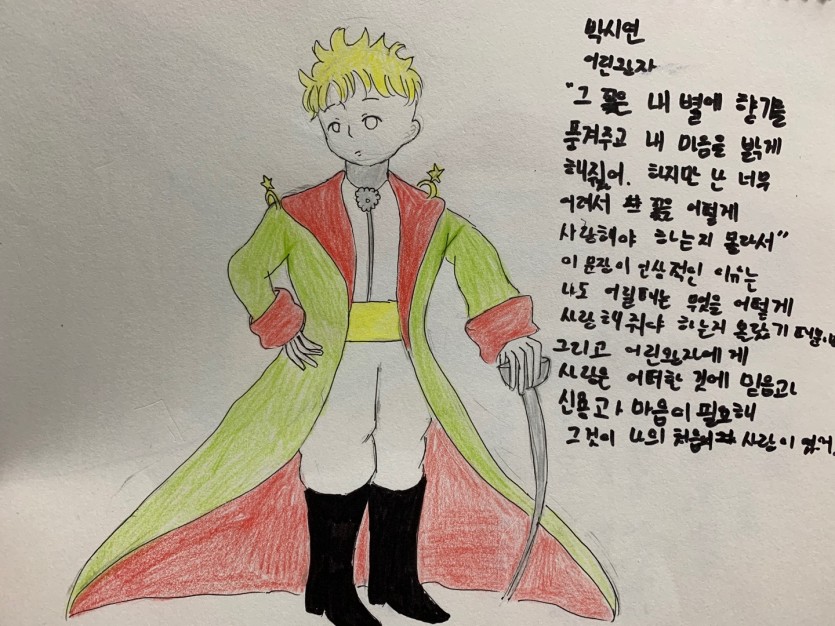 박시연
어린왕자
"그 꽃은 내 별에 향기를
풍겨주고 내 마음을 밝게
해줬어. 하지만 난 너무
어려서 그 꽃을 어떻게
사랑해야 하는지 몰라서"
이 문장이 인상적인 이유는
나도 어릴때는 무엇을 어떻게
사랑해 줘야 하는지 몰랐기 때문
그리고 어린왕자에게
사랑은 어떠한 것에 믿음과
신용과 마음이 필요해
그것이 나의 처음 사랑이